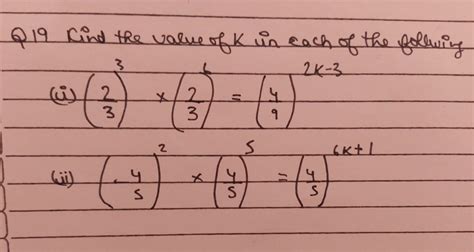 Q19 Find the value of K in each of the following
(i) (2/3)^3 × (2/3)^6 = (4/9)^2K-3
(ii) (-4/5)^2 × (4/5)^5 = (4/5)^6K+1